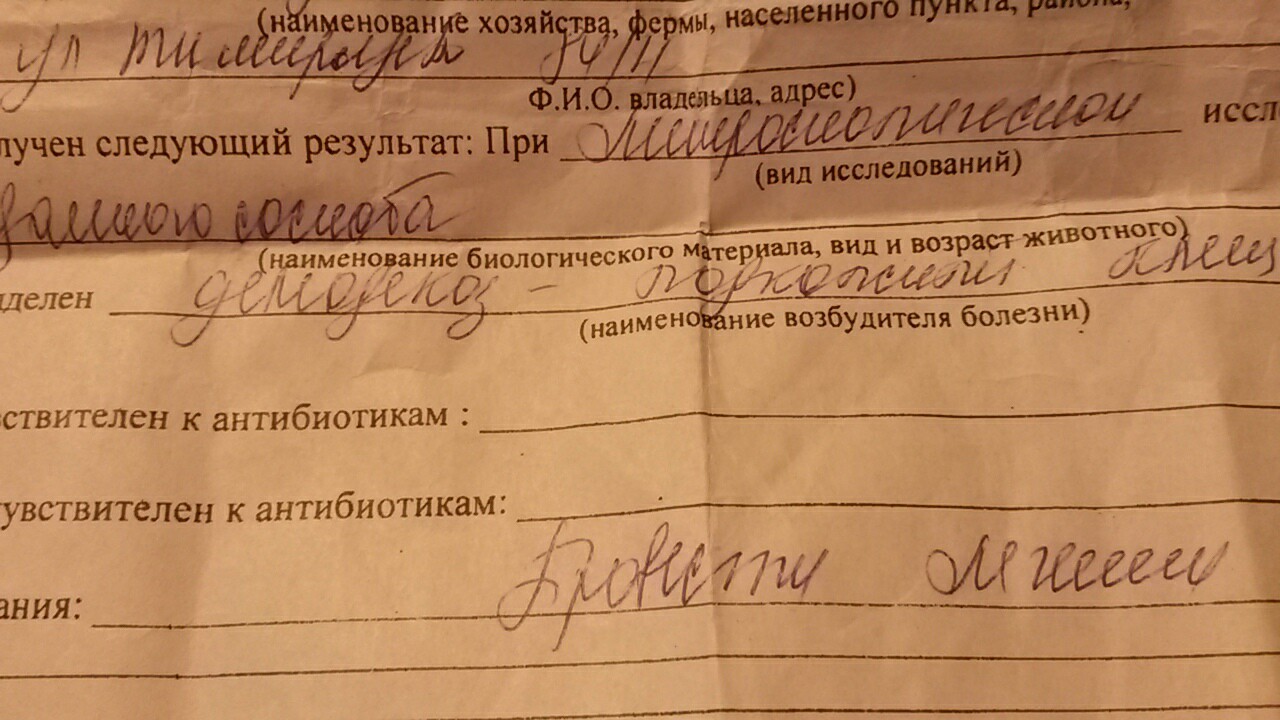 (наименование хозяйства, фермы, населенного пункта, района,
ул Тимирязева
Ф.И.О. владельца, адрес)
лучен следующий результат: При микроскопической иссл
(вид исследований)
данного соскоба
(наименование биологического материала, вид и возраст животного)
делен демодекоз - подкожный клещ
(наименование возбудителя болезни)
ствителен к антибиотикам :
увствителен к антибиотикам:
ания: Провести лечение